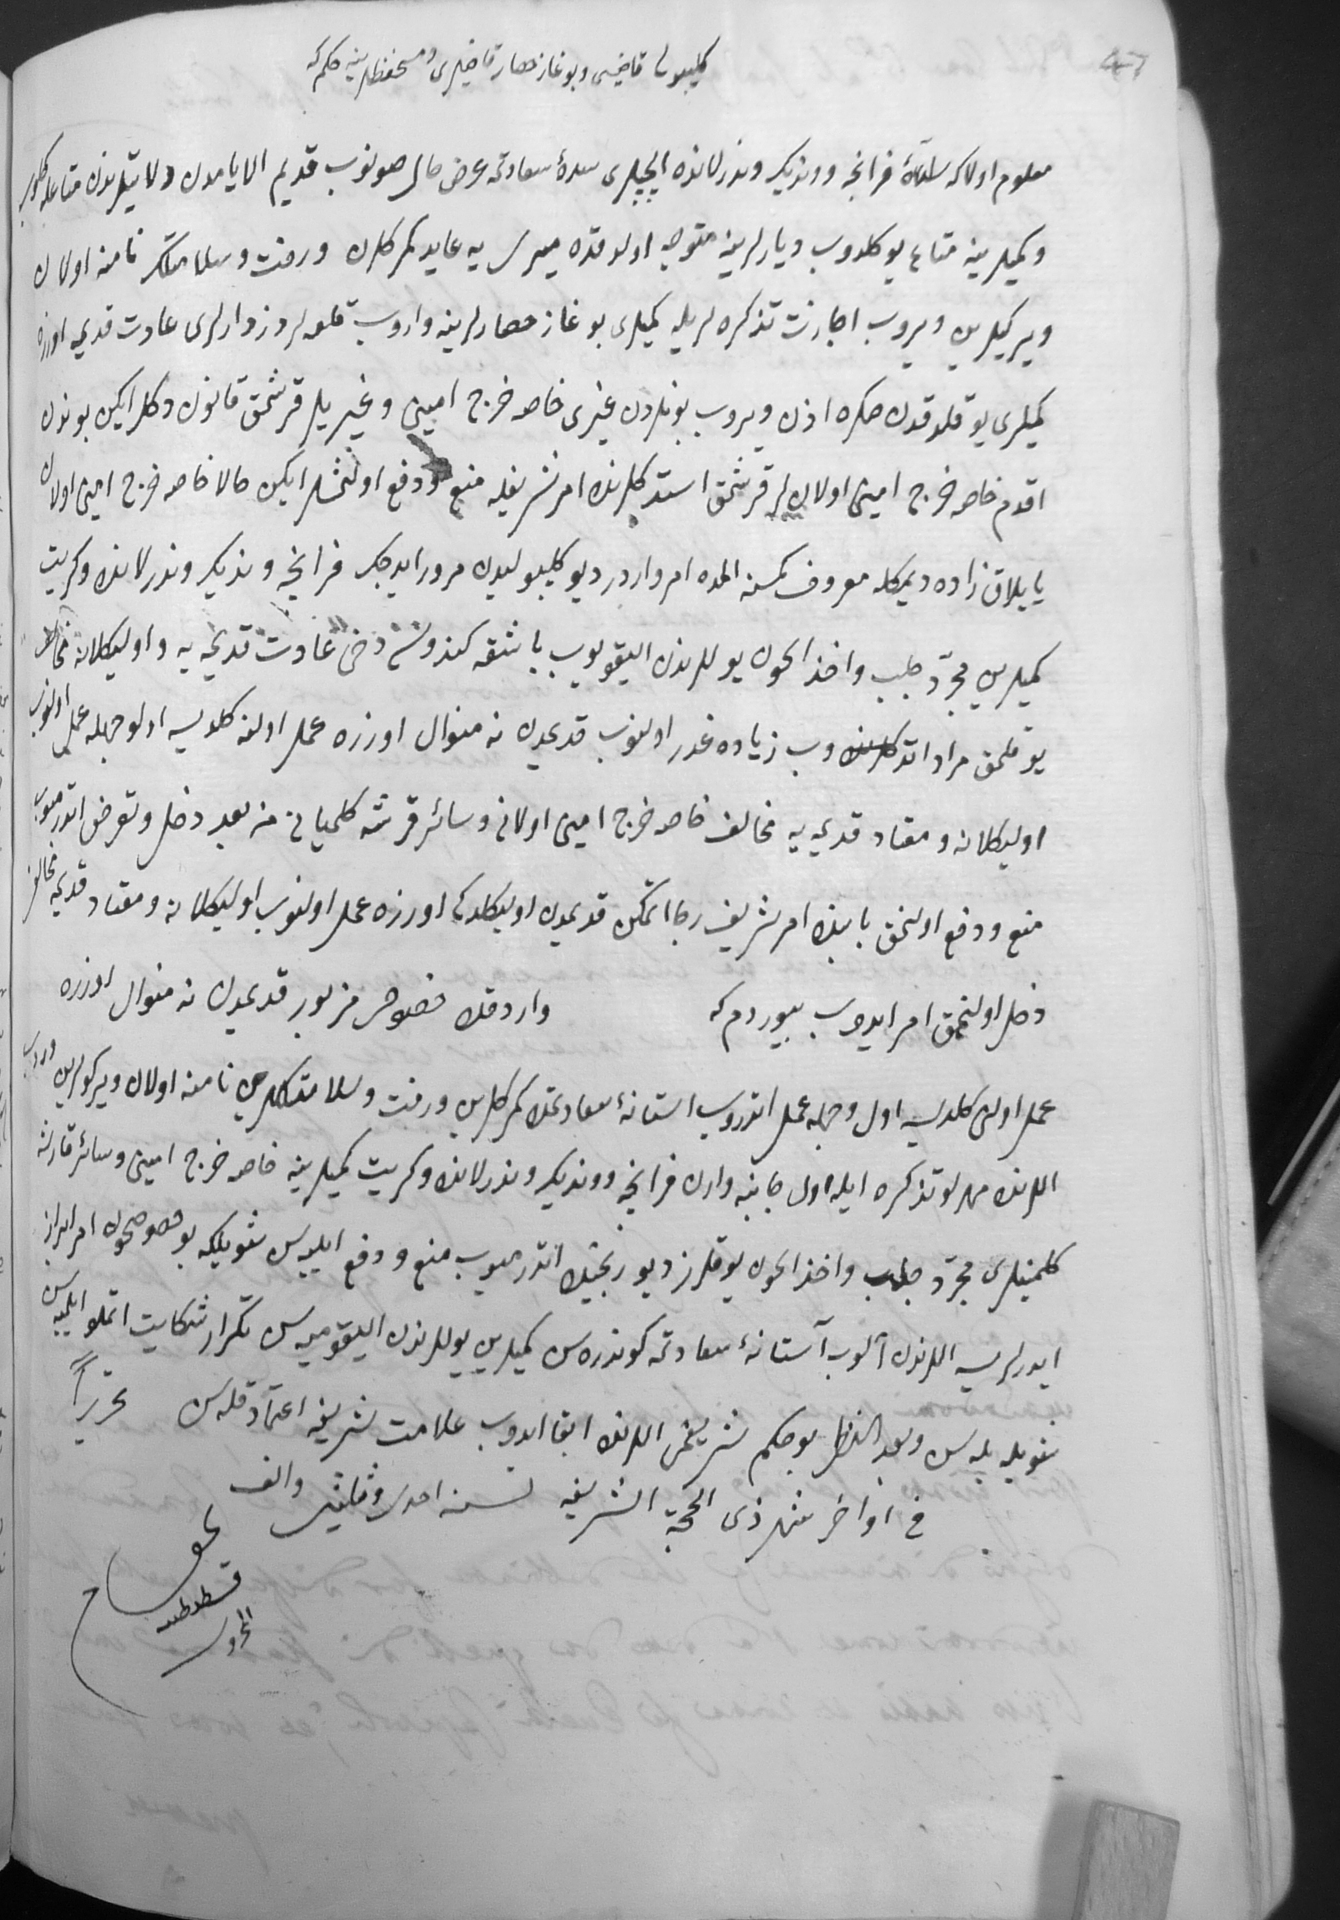 47
كليبولى قاضيسى و بوغاز حصار قاضيلرى و مستحفظلرينه حكم كه
معلوم اولا كه فرانچه و ونديك و ندرلانده ايلچيلرى سدهٔ سعادته عرض حال صونوب قديم الايامدن ولايتلرندن متاعله كلوب
و كميلرينه متاع يوكلدوب ديارلرينه متوجه اولدوقده ميرى يه عايد كمركلرن و رفت و سلامتلك نامنه اولان
ويركيلرين ويروب اجازت تذكره لريله كميلرى بوغاز حصارلرينه واروب قلعه لر دزدارلرى عادت قديمه اوزره
كميلرى يوقلدوقدن صكره اذن ويروب بونلردن غيرى خاصه خرج امينى و غيريلر قرشمق قانون دكل ايكن بوندن
اقدم خاصه خرج امينى اولانلر قرشمق استدكلرنده امر شريفله منع و دفع اولنمشلر ايكن حالا خاصه خرج امينى اولان
يايلاق زاده ديمكله معروف كمسنه المده امر واردر ديو كليبوليدن مرور ايدجك فرانچه و ونديك و ندرلانده و كريت
كميلرين مجرد جلب و اخذ ايچون يوللرندن اليقويوب باشقه كندوسى دخى عادت قديمه يه و اوليكلانه مخالف
يوقلمق مراد ايدوب زياده غدر اولنوب قديمدن نه منوال اوزره عمل اولنه كلديسه اولوجهله عمل اولنوب
اوليكلانه و معتاد قديمه يه مخالف خاصه خرج امينى اولانى و سائر قرشه كلميانى من بعد دخل و تعرض اتدرميوب
منع و دفع اولنمق بابنده امر شريف رجا اتمكن قديمدن اوليكلدكى اوزره عمل اولنوب اوليكلانه و معتاد قديمه مخالف
دخل اولنممق امر ايدوب بيوردم كه واردقده خصوص مزبور قديمدن نه منوال اوزره
عمل اولنى كلديسه اول وجهله عمل اتدروب استانهٔ سعادتمده كمركلرين و رفت و سلامتلكلرين نامنه اولان ويركولرين ويروب
اللرنده مهرلو تذكره ايله اول جانبه واران فرانچه و ونديك و ندرلانده و كريت كميلرينه خاصه خرج امينى و سائر قارشه
كلمينلرى مجرد جلب و اخذ ايچون يوقلرز ديو رنجيده اتدرميوب منع و دفع ايليه سن شويلكه بو خصوصيچون امر ابراز
ايدرلرسه اللرندن آلوب آستانهٔ سعادتمه كوندره سن كميلرين يوللرندن اليقوميه سن تكرار شكايت اتملو ايلميه سن
شويله بلسن و بعد النظر بو حكم شريفمى اللرنده ابقا ايدوب علامت شريفه اعتماد قلاسن تحريراً
فى اواخر شهر ذى الحجة الشريفه لسنه احدى و ثلثين و الف
بمقام
قسطنطنيه
المحروسه